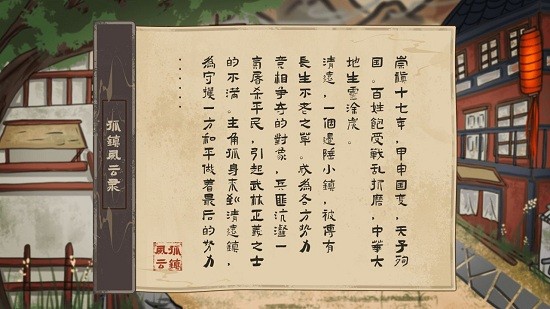 崇禎十七年，甲申国变，天子殉
国。百姓飽受戰乱折磨，中華大
地生靈涂炭。
清遠，一個邊陲小鎮，被傳有
長生不老之單。成為各方势力
竟相爭夺的對象，兵匪沆瀣一
氣屠杀平民，引起武林正義之士
的不满。主角孤身來到清遠鎮，
為守護一方和平做着最后的努力
......
孤鎮風云录
孤鎮
風云